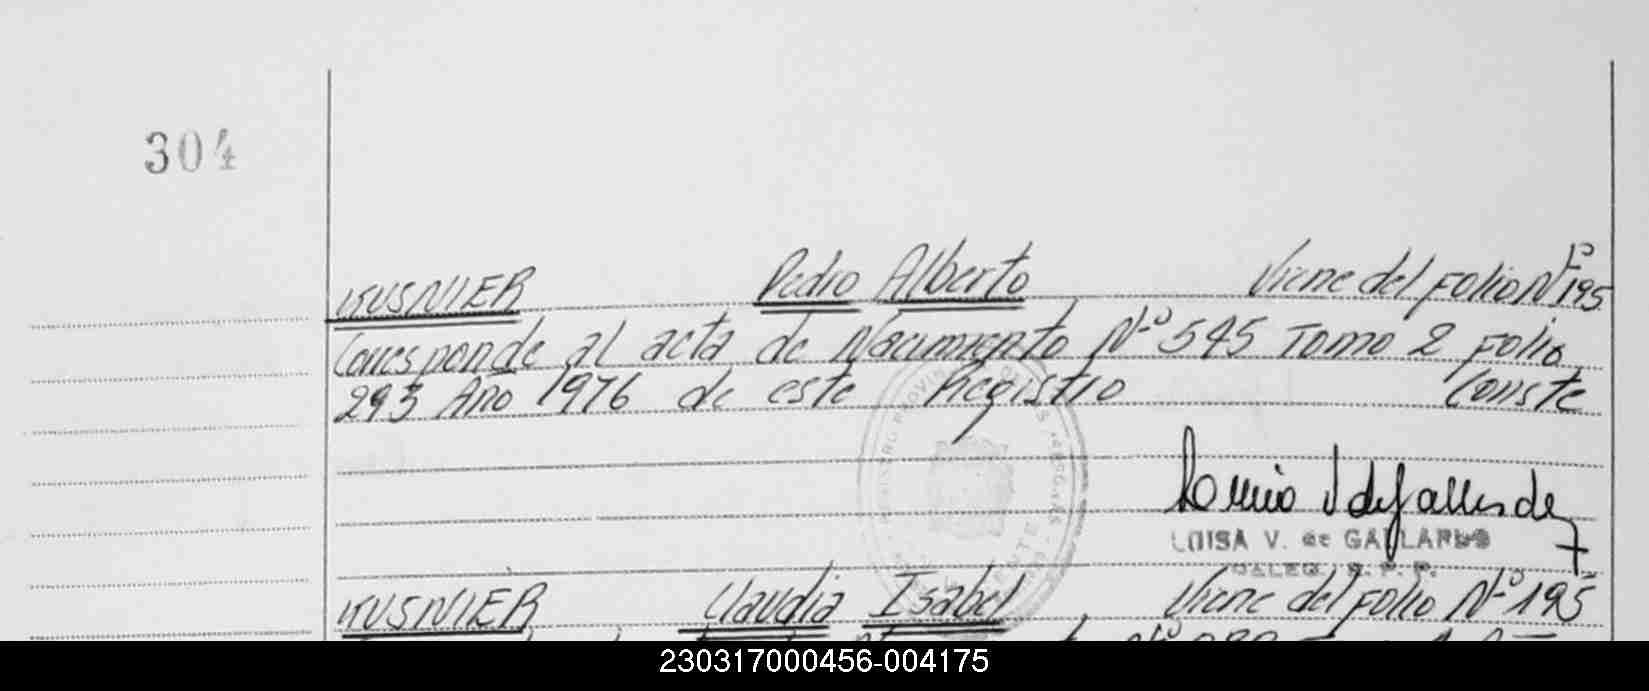 304
KUSNIER Pedro Alberto Viene del Folio Nº 195
Corresponde al acta de Nacimiento Nº 545 Tomo 2 Folio
293 Año 1976 de este Registro Conste
LUISA V. de GALLARDO
KUSNIER Claudia Isabel Viene del Folio Nº 195
230317000456-004175